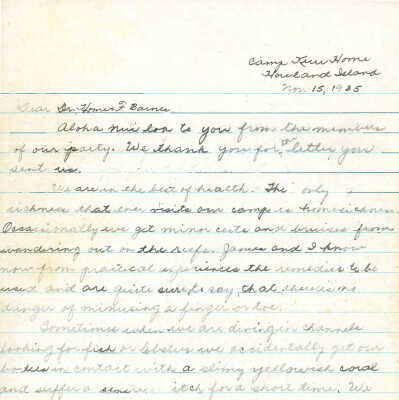 Camp Kuu Home
Howland Island
Nov. 15, 1935
Dear Dr. Homer F Barnes
Aloha nui loa to you from the members
of our party. We thank you for the letter you
sent us.
We are in the best of health. The only
sickness that ever visits our camp is homesickness
Occasionally we get minor cuts and bruises from
wandering out on the reefs. James and I know
now from practical experiences the remedies to be
used and are quite sure to say, that, there is no
danger of minusing a finger or toe.
Sometimes when we are diving in channels
looking for fish or lobsters we accidentally get our
bodies in contact with a slimy yellowish coral
and suffer a itch for a short time. We